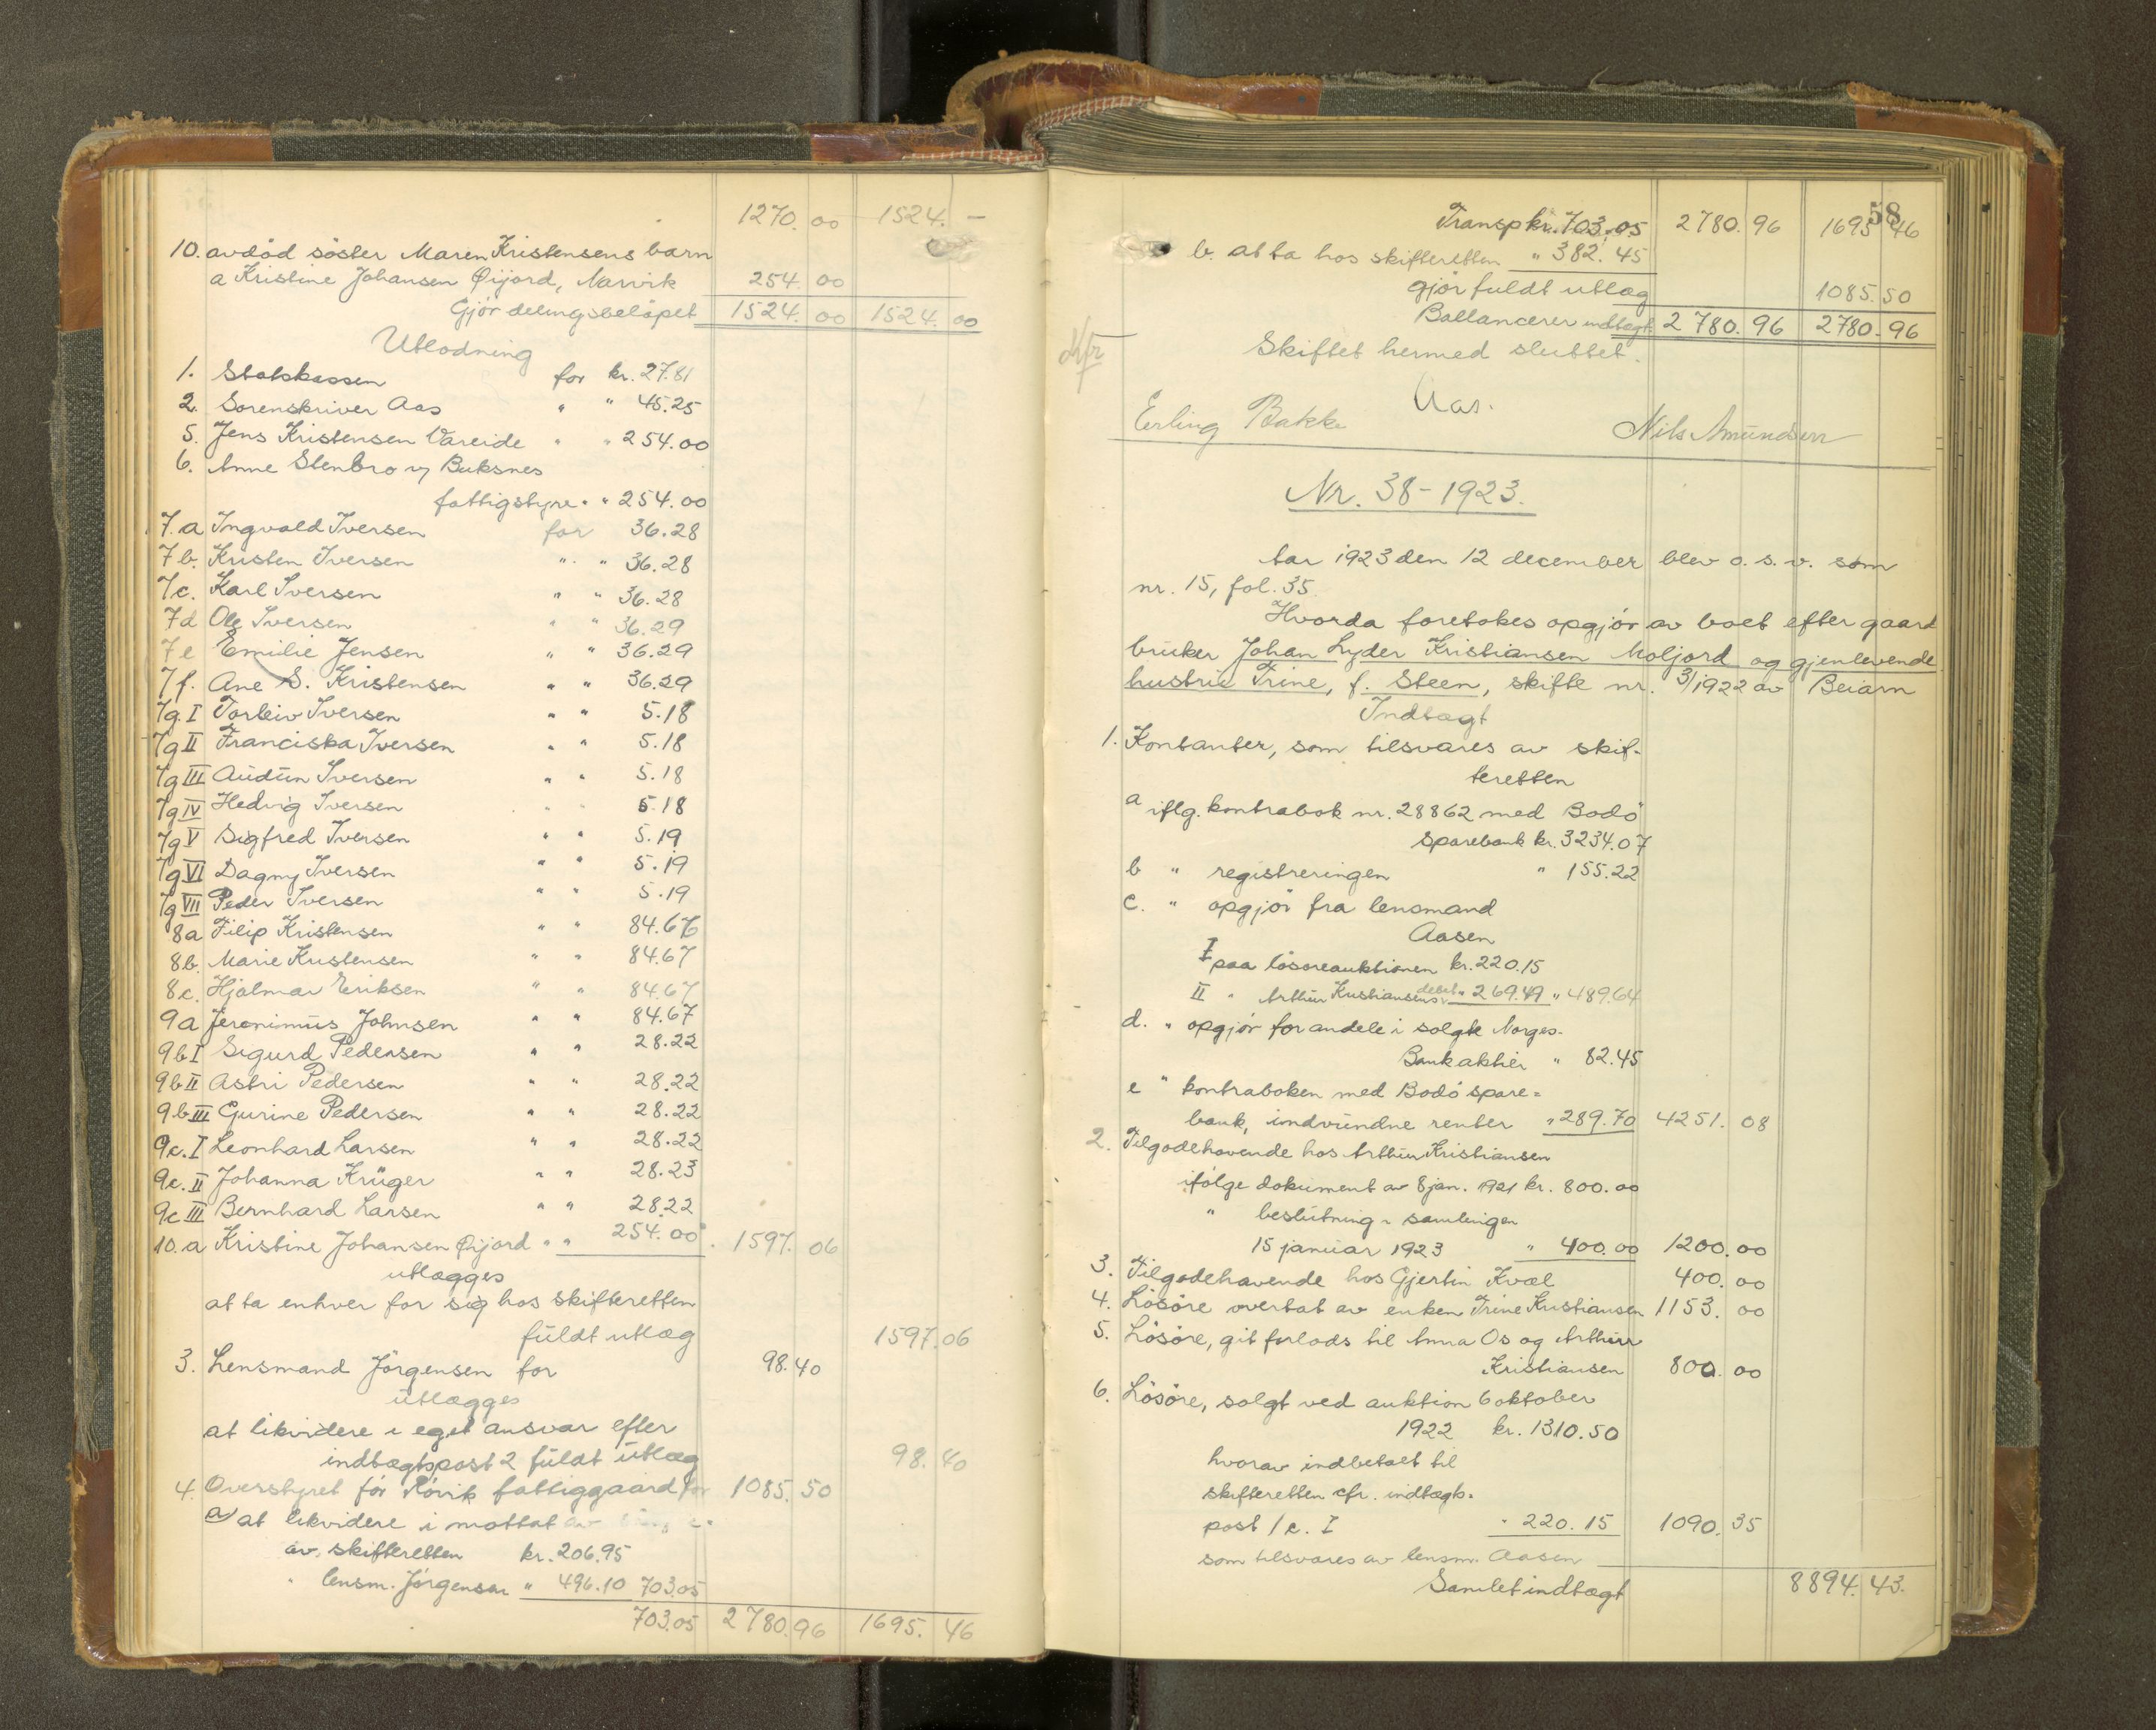 1270.00 1524. —
10. avdöd söster Maren Kristensens barn
a Kristine Johansen Öijord, Narvik 254.00
Gjör delingsbelöpet 1524.00 1524.00
Utlodning
1. Statskassen for kr. 27.81
2. Sorenskriver Aas " " 45.25
5. Jens Kristensen Vareide " " 254.00
6. Anne Stenbro v/ Buksnes
fattigstyre " " 254.00
7.a Ingvald Iversen for 36.28
7b. Kristen Iversen " " 36.28
7c. Karl Iversen " " 36.28
7d Ole Iversen " " 36.29
7e Emilie Jensen " " 36.29
7f. Ane S. Kristensen " " 36.29
7g. I Torleiv Iversen " " 5.18
7g II Franciska Iversen " " 5.18
7g III Audun Iversen " " 5.18
7g IV Hedvig Iversen " " 5.18
7g V Sigfred Iversen " " 5.19
7g VI Dagny Iversen " " 5.19
7g VII Peder Iversen " " 5.19
8a Filip Kristensen " " 84.67
8b. Marie Kristensen " " 84.67
8c. Hjalmar Eriksen " " 84.67
9a Jeronimus Johnsen " " 84.67
9b I Sigurd Pedersen " " 28.22
9b II Astri Pedersen " " 28.22
9b III Gurine Pedersen " " 28.22
9c. I Leonhard Larsen " " 28.22
9c. II Johanna Krüger " " 28.23
9c III Bernhard Larsen " " 28.22
10.a Kristine Johansen Öijord " " 254.00 1597.06
utlægges
at ta enhver for sig hos skifteretten
fuldt utlæg 1597.06
3. Lensmand Jörgensen for 98.40
utlægges
at likvidere i eget ansvar efter
indtægtspost 2 fuldt utlæg 98.40
4. Overstyret for Rövik fattiggaard for 1085.50
a) at likvidere i mottat av
av skifteretten kr. 206.95
" lensm. Jörgensen " 496.10 703.05
703.05 2780.96 1695.46
58
Transp kr. 703.05 2780.96 1695 46
b. at ta hos skifteretten " 382.45
gjör fuldt utlæg 1085.50
Ballancerer indtægt 2780.96 2780.96
Skiftet hermed sluttet.
Aas.
Erling Bakke Nils Amundsen
Nr. 38-1923.
Aar 1923 den 12 december blev o.s.v. som
nr. 15, fol. 35.
Hvorda foretokes opgjör av boet efter gaard
bruker Johan Lyder Kristiansen Moljord og gjenlevende
hustru Trine, f. Steen, skifte nr. 3/1922 av Beiarn
Indtægt
1. Kontanter, som tilsvares av skif-
teretten
a iflg. kontrabok nr. 28862 med Bodö
sparebank kr. 3234.07
b " registreringen " 155.22
c. " opgjör fra lensmand
Aasen
I paa lösöreauktionen kr. 220.15
II " Arthur Kristiansens debet " 269.49 " 489.64
d. " opgjör for andele i solgte Norges-
Bank aktier " 82.45
e " kontraboken med Bodö spare=
bank, indvundne renter " 289.70 4251.08
2. Tilgodehavende hos Arthur Kristiansen
ifölge dokument av 8 jan. 1921 kr. 800.00
" beslutning i samlingen
15 januar 1923 " 400.00 1200.00
3. Tilgodehavende hos Gjertin Kvæl 400.00
4. Lösöre overtat av enken Trine Kristiansen 1153.00
5. Lösöre, git forlods til Anna Os og Arthur
Kristiansen 800.00
6. Lösöre, solgt ved auktion 6 oktober
1922 kr. 1310.50
hvorav indbetalt til
skifteretten cfr. indtægts-
post 1c. I " 220.15 1090.35
som tilsvares av lensm. Aasen
Samlet indtægt 8894.43.